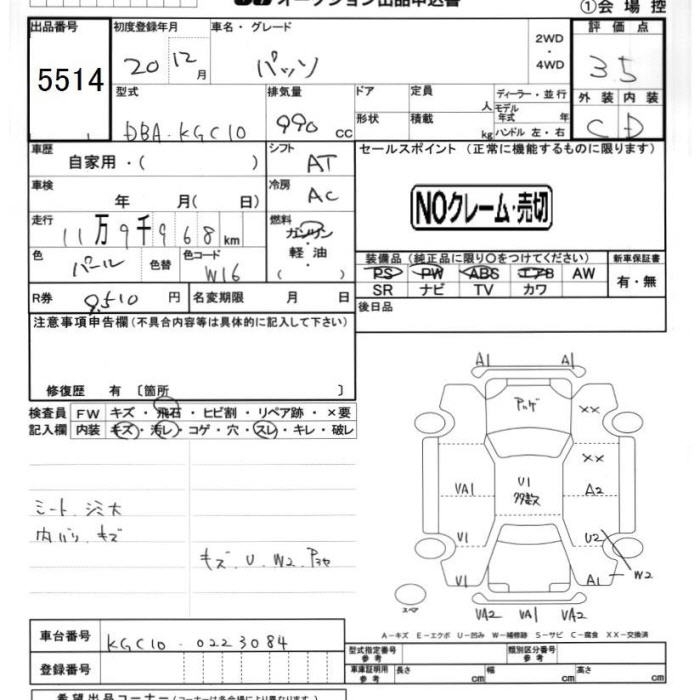 オークション出品申込書
①会場控
出品番号
5514
初度登録年月
20 12月
車名・グレード
パッソ
2WD
・
4WD
評価点
3.5
外装 内装
C D
型式
DBA-KGC10
排気量
990 cc
ドア
形状
定員
人
積載
kg
ディーラー・並行
モデル年式 年
ハンドル 左・右
車歴
自家用・( )
シフト
AT
セールスポイント (正常に機能するものに限ります)
NOクレーム・売切
車検
年 月( 日)
冷房
AC
走行
11万9千968km
燃料
ガソリン
・
軽油
( )
色
パール
色替
色コード
W16
装備品 (純正品に限り○をつけてください)
PS PW ABS エアB AW
SR ナビ TV カワ
新車保証書
有・無
R券
8,510 円
名変期限 月 日
後日品
注意事項申告欄 (不具合内容等は具体的に記入して下さい)
修復歴 有 〔箇所 〕
検査員
記入欄
FW キズ・飛石・ヒビ割・リペア跡・×要
内装 キズ・汚レ・コゲ・穴・スレ・キレ・破レ
シート、シミ大
内バリ、キズ
キズ、U、W2、
A1 A1
XX
XX
VA1
U1
多数
A2
V1 U2
V1 A1 W2
VA2 VA1 VA2
スペア
A-キズ E-エクボ U-凹み W-補修跡 S-サビ C-腐食 XX-交換済
車台番号
KGC10-0223084
登録番号
型式指定番号
参考
類別区分番号
参考
車庫証明用
参考
長さ cm 幅 cm 高さ cm
希望出品コーナー